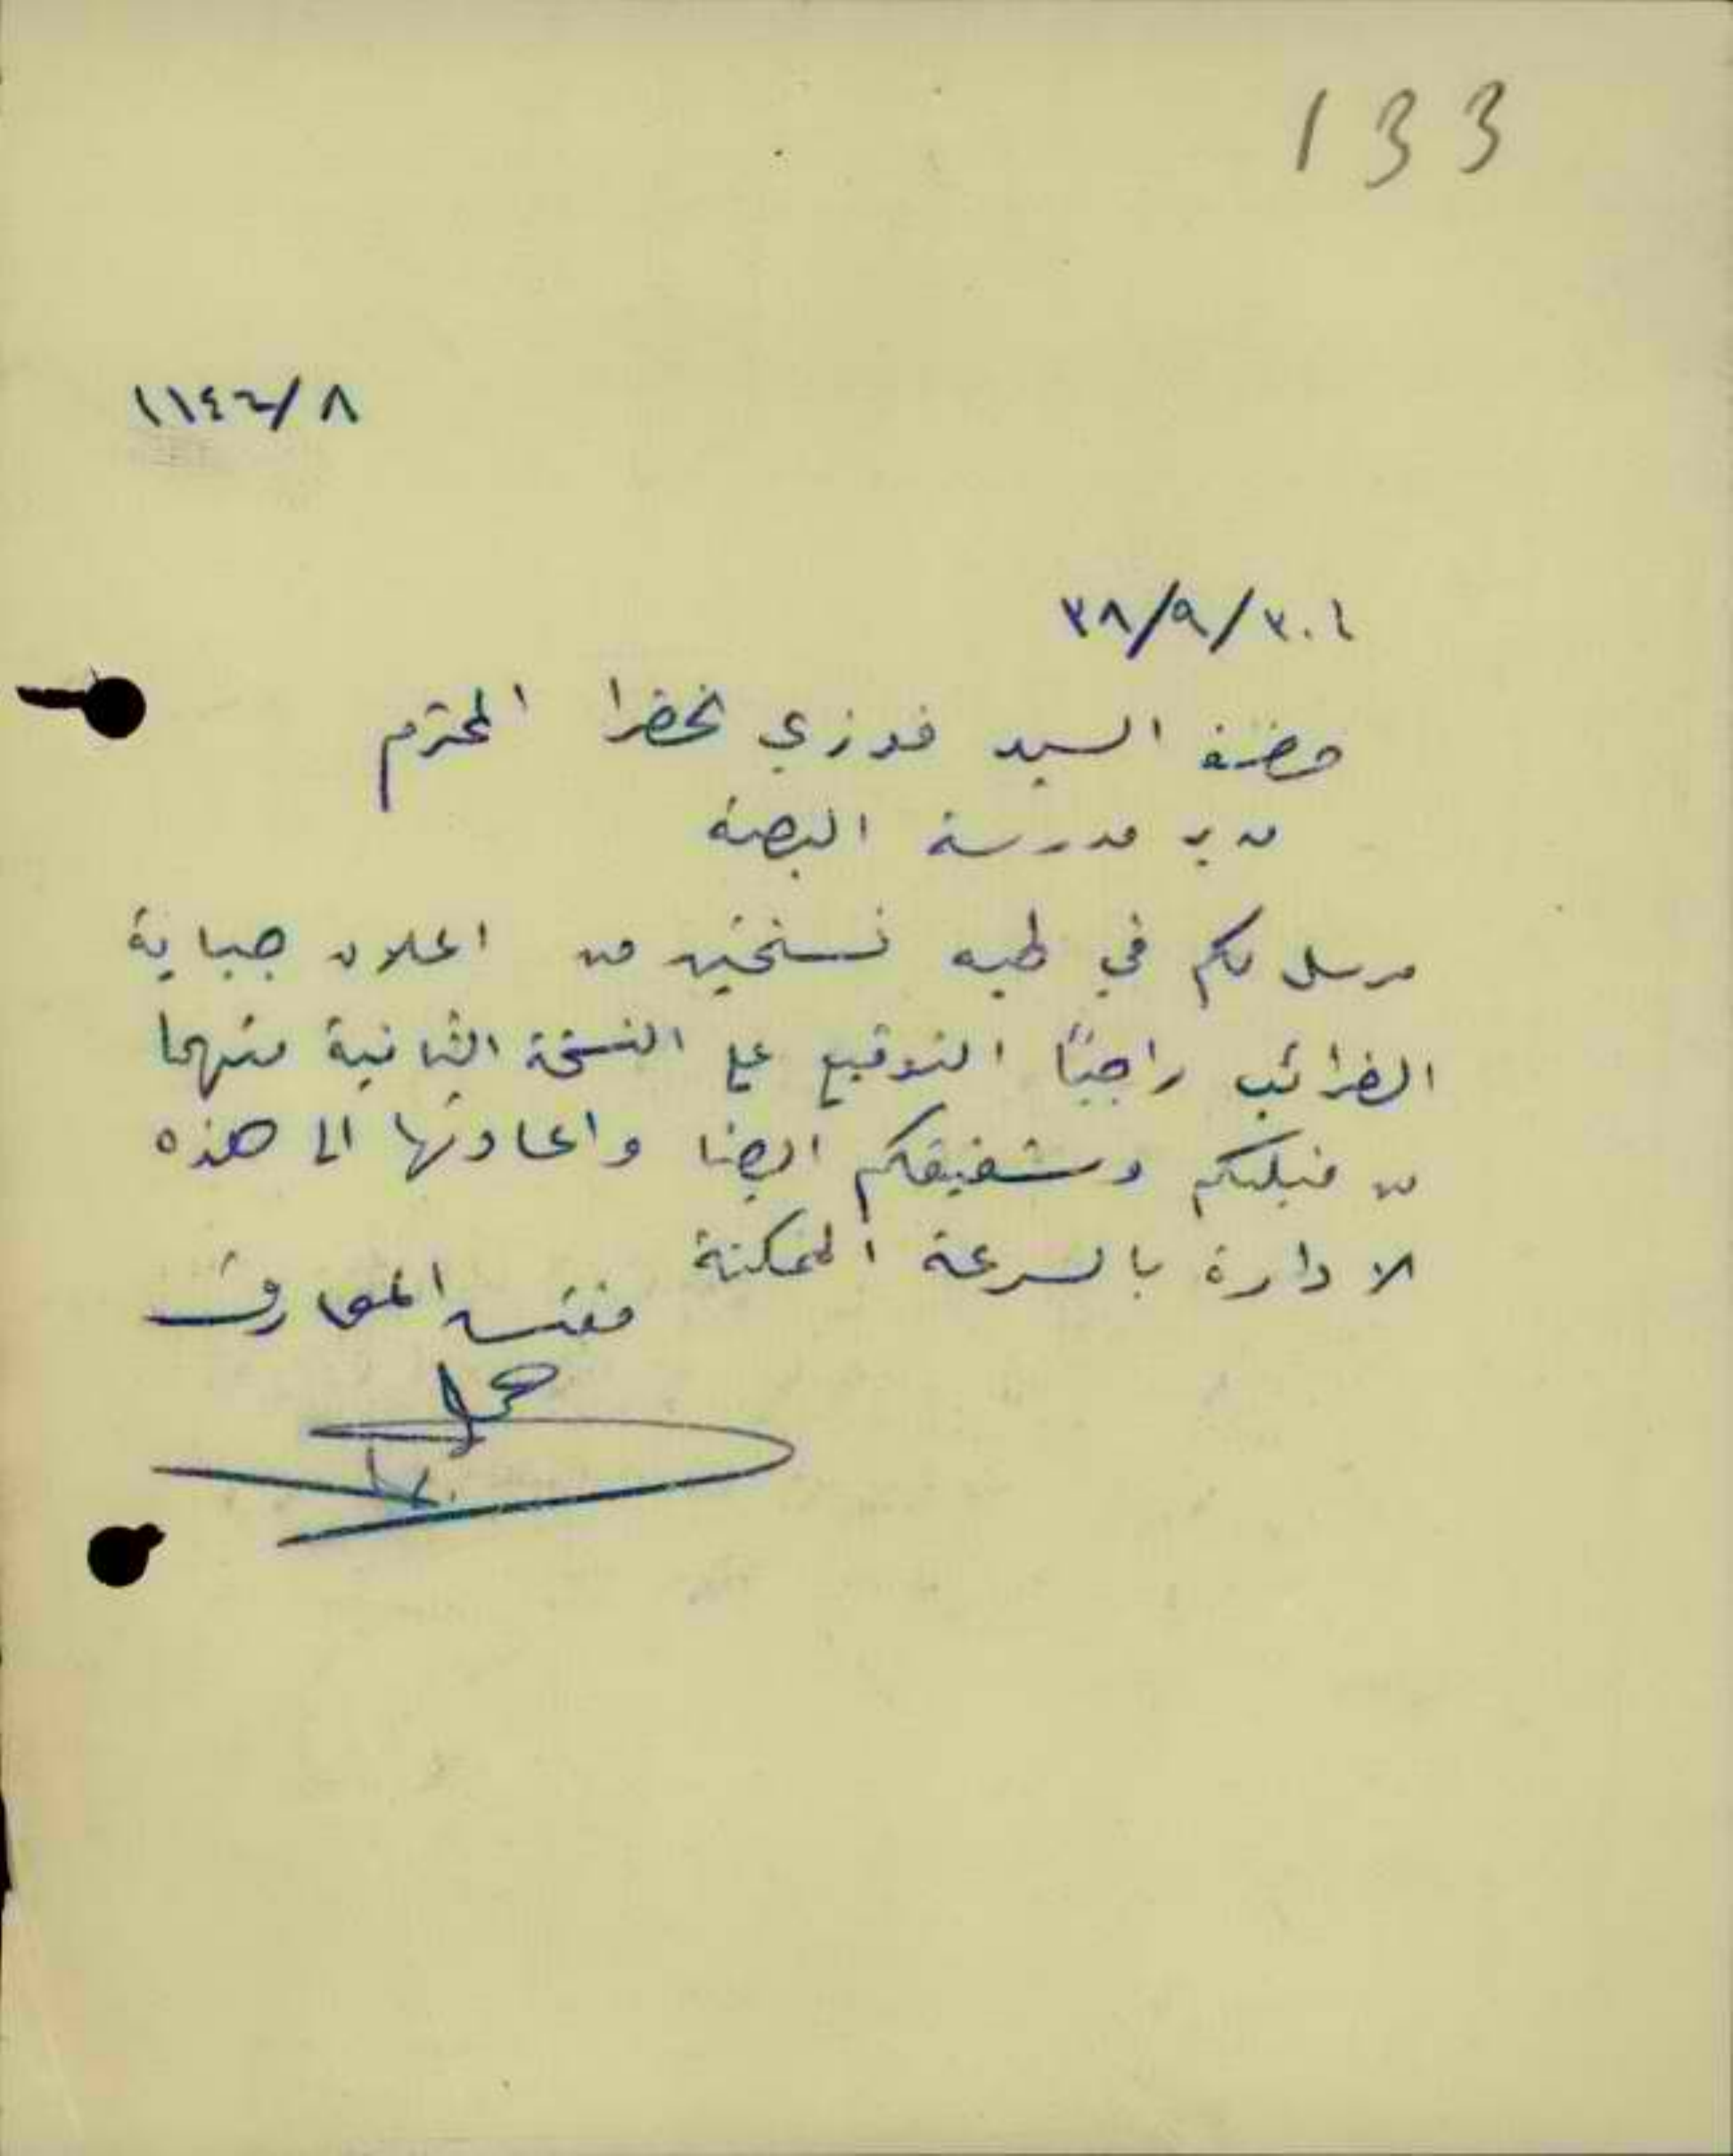 133
١١٤٢/٨
٣٨/٩/٣٠
حضرة السيد فوزي الخضرا المحترم
مدير مدرسة البصة
مرسل لكم في طيه نسختين من اعلان جباية
الضرائب راجيًا التوقيع على النسخة الثانية منهما
من قبلكم وشفيقكم ايضا واعادتها الى هذه
الادارة بالسرعة الممكنة
مفتش المعارف